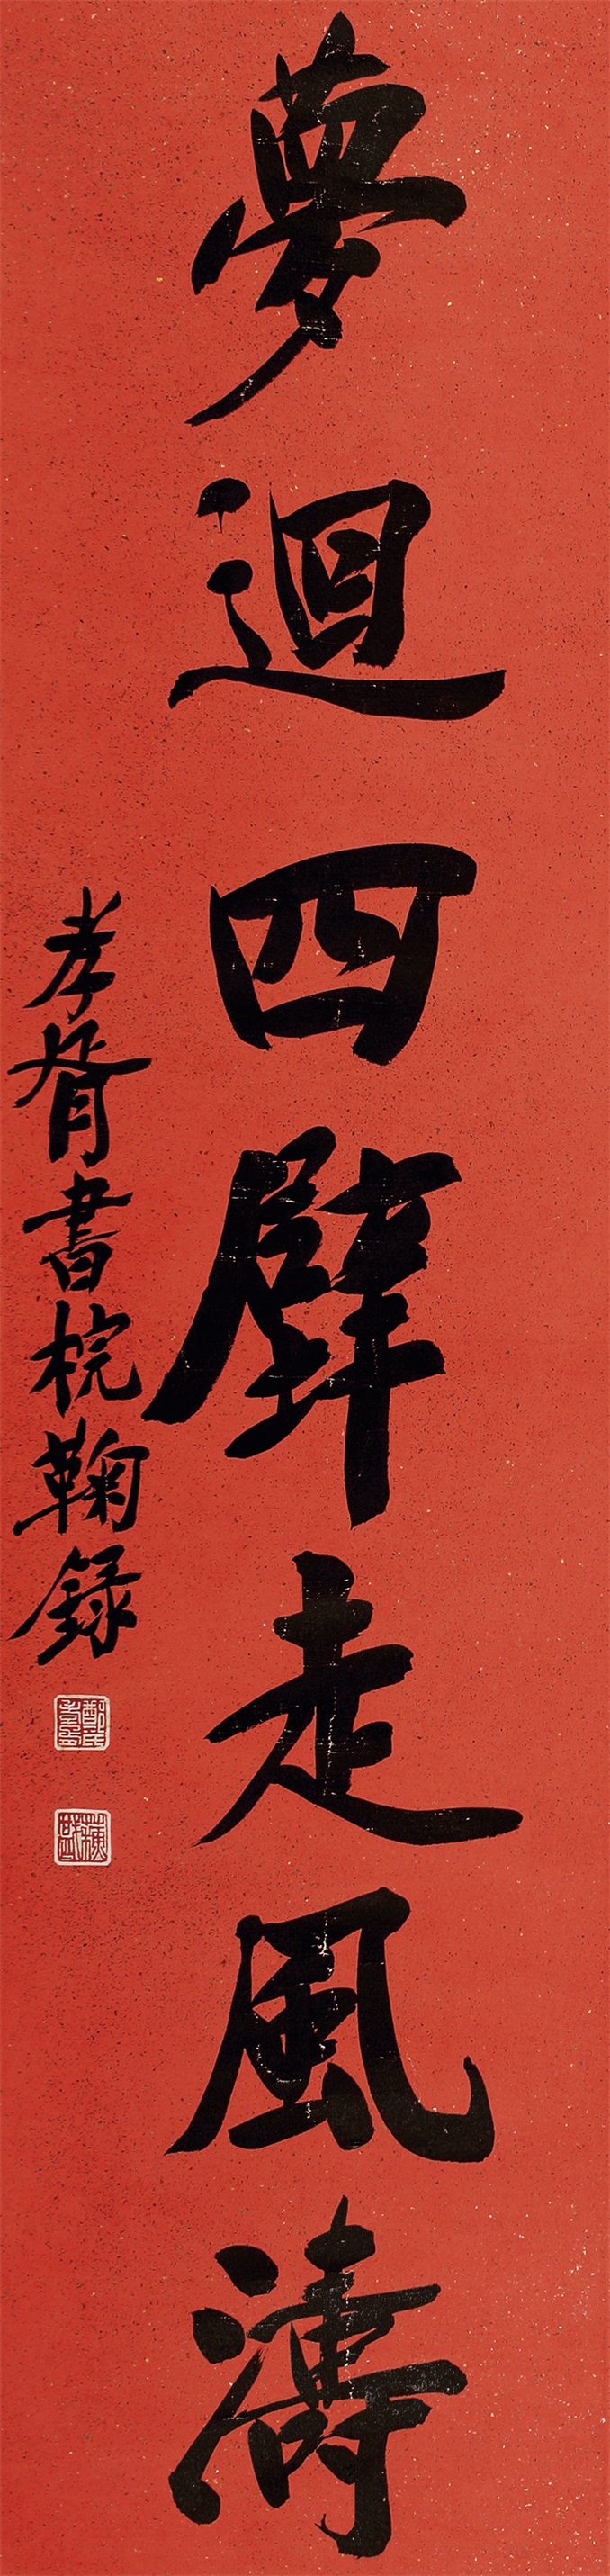 夢迴四壁走風濤
孝胥書梡鞠錄